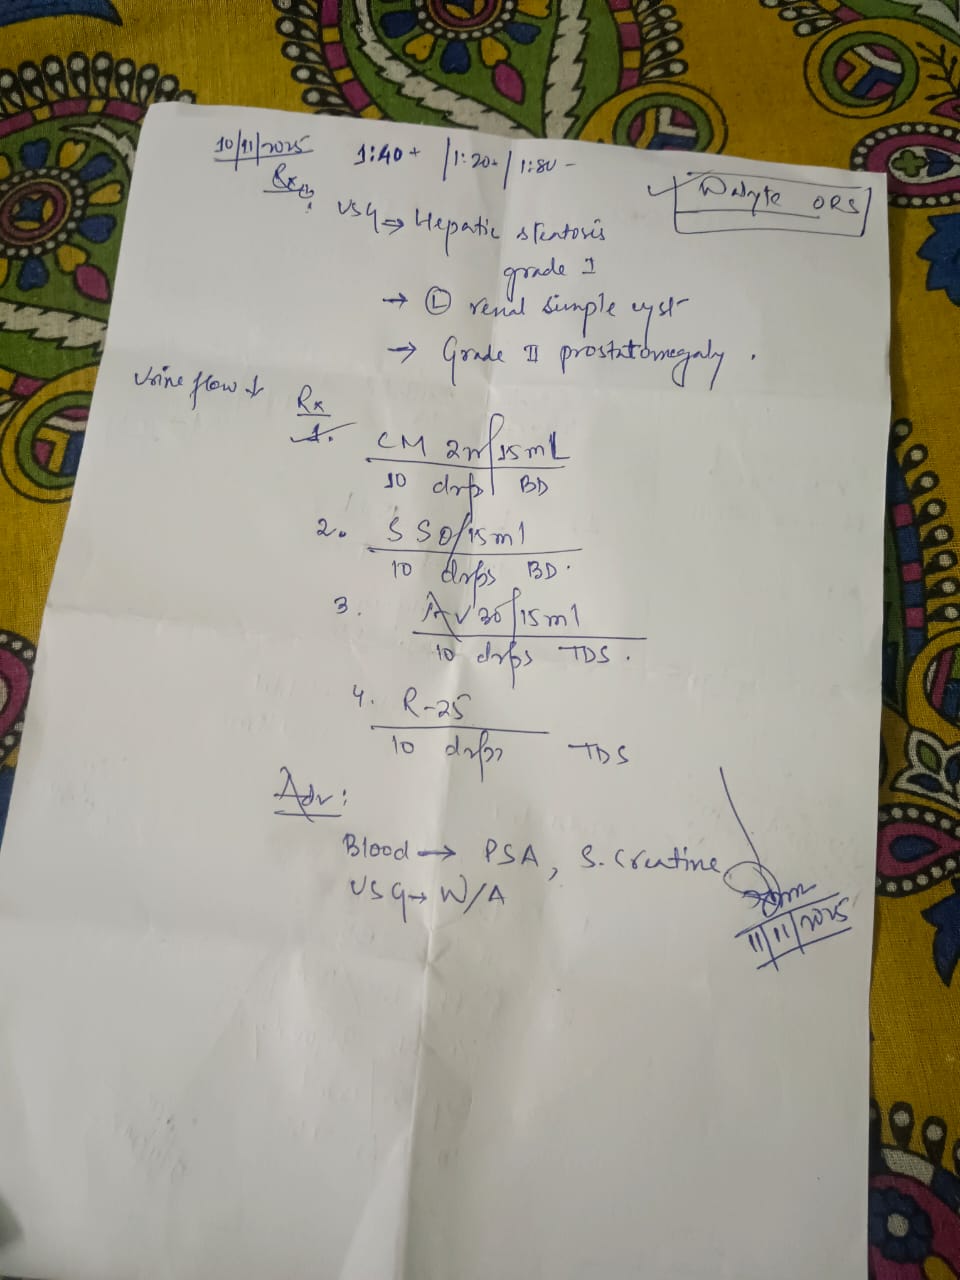 10/11/2025 1:40+ / 1:20+ / 1:80-
Walyte ORS
Rx
USG → Hepatic steatosis
grade I
→ Ⓛ renal simple cyst
→ Grade II prostatomegaly.
Urine flow ↓
Rx
1. CM 2m/15ml
10 drps BD
2. S SO/15ml
10 drps BD.
3. Av 30/15ml
10 drps TDS.
4. R-25
10 drps TDS
Adv:
Blood → PSA, S. Creatine
USG → W/A
11/11/2025